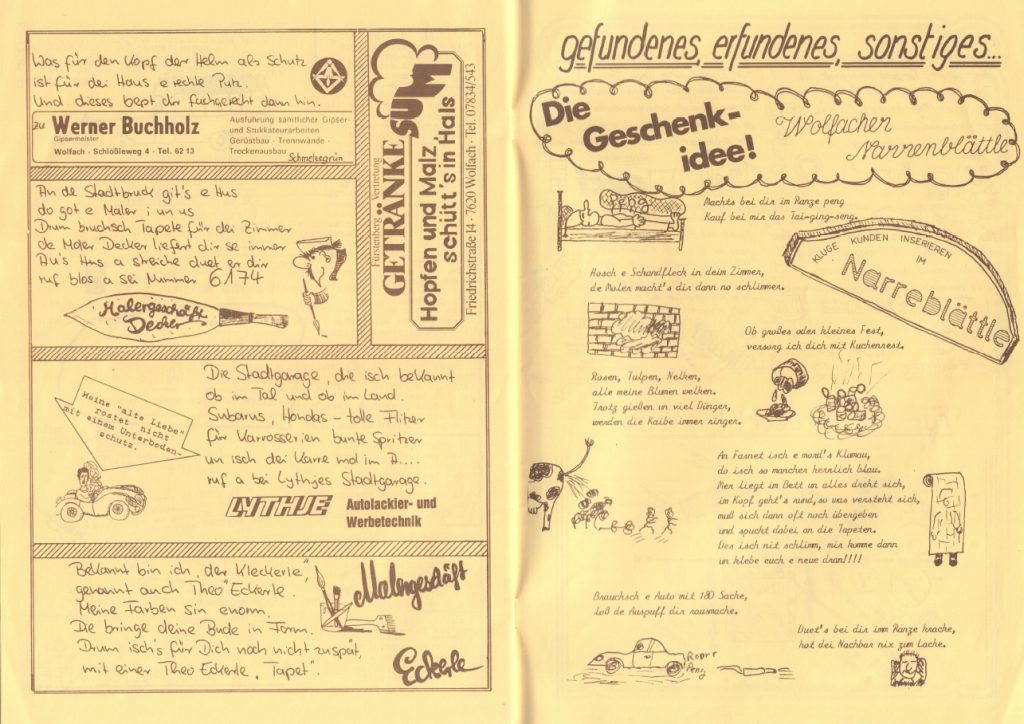 Was für den Kopf der Helm als Schutz
ist für dei Haus e rechte Putz.
Und dieses bept dir fachgerecht dann hin.
zu Werner Buchholz
Gipsermeister
Wolfach - Schlößleweg 4 - Tel. 62 13
Ausführung sämtlicher Gipser-
und Stukkateurarbeiten
Gerüstbau - Trennwände -
Trockenausbau
Schmelzegrün
An de Stadtbruck git's e Hus
do got e Maler i un us
Drum bruchsch Tapete für dei Zimmer
de Maler Decker liefert dir se immer
Au's Hus a streiche duet er dir
ruf blos a sei Nummer 6174
Malergeschäft
Decker
Fürstenberg-Vertretung
GETRÄNKE SUM
Hopfen und Malz
schütt's in Hals
Friedrichstraße 14 · 7620 Wolfach · Tel. 07834/543
Meine "alte Liebe"
rostet nicht
mit einem Unterboden-
schutz.
Die Stadtgarage, die isch bekannt
ob im Tal und ob im Land.
Subarus, Hondas - tolle Flitzer
für Karrosserien bunte Spritzer
un isch dei Karre mol im A....
ruf a bei Lythjes Stadtgarage.
LYTHJE
Autolackier- und
Werbetechnik
Bekannt bin ich "der Kleckerle",
genannt auch Theo Eckerle.
Meine Farben sin enorm.
Die bringe deine Bude in Form.
Drum isch's für Dich noch nicht zu spät,
mit einer Theo Eckerle "Tapet".
Malergeschäft
Eckerle
gefundenes, erfundenes, sonstiges...
Die
Geschenk-
idee!
Wolfacher
Narrenblättle
Machts bei dir im Ranze peng
Kauf bei mir das Tai-ging-seng.
KLUGE KUNDEN INSERIEREN
IM
Narreblättle
Hosch e Schandfleck in deim Zimmer,
de Moler macht's dir dann no schlimmer.
Ob großes oder kleines Fest,
versorg ich dich mit Kuchenrest.
Rosen, Tulpen, Nelken,
alle meine Blumen welken.
Trotz gießen un viel Dünger,
werden die Kaibe immer ringer.
An Fasnet isch e mord's Klamau,
do isch so mancher herrlich blau.
Mer liegt im Bett un alles dreht sich,
im Kopf geht's rund, so was versteht sich,
muß sich dann oft noch übergeben
und spuckt dabei an die Tapeten.
Des isch nit schlimm, mir komme dann
un klebe euch e neue dran!!!!
Brauchsch e Auto mit 180 Sache,
loß de Auspuff dir rausmache.
Duet's bei dir imm Ranze krache,
hot dei Nachbar nix zum Lache.